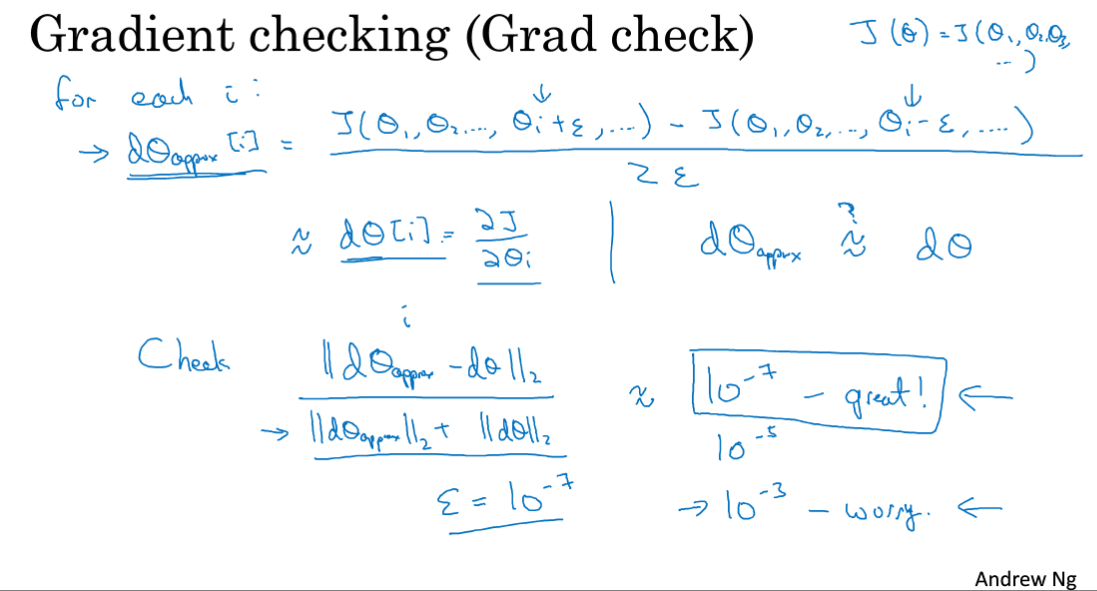 Gradient checking (Grad check)
J(θ) = J(θ₁, θ₂, θ₃, ...)
for each i:
→ dθapprox[i] = J(θ₁, θ₂, ..., θᵢ+ε, ...) - J(θ₁, θ₂, ..., θᵢ-ε, ...)
2ε
≈ dθ[i] = ∂J/∂θᵢ | dθapprox ≈? dθ
i
Check ||dθapprox - dθ||₂ ≈ 10⁻⁷ - great! ←
→ ||dθapprox||₂ + ||dθ||₂
10⁻⁵
ε = 10⁻⁷
→ 10⁻³ - worry. ←
Andrew Ng